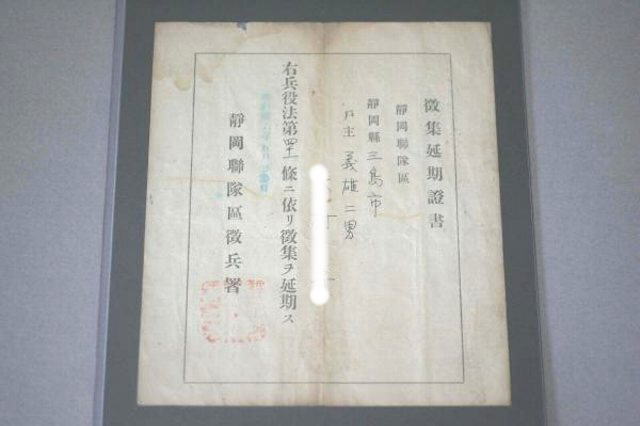 徴集延期證書
靜岡聯隊區
靜岡縣三島市
戸主 義雄二男
右兵役法第四十一條ニ依リ徴集ヲ延期ス
靜岡聯隊區徴兵署